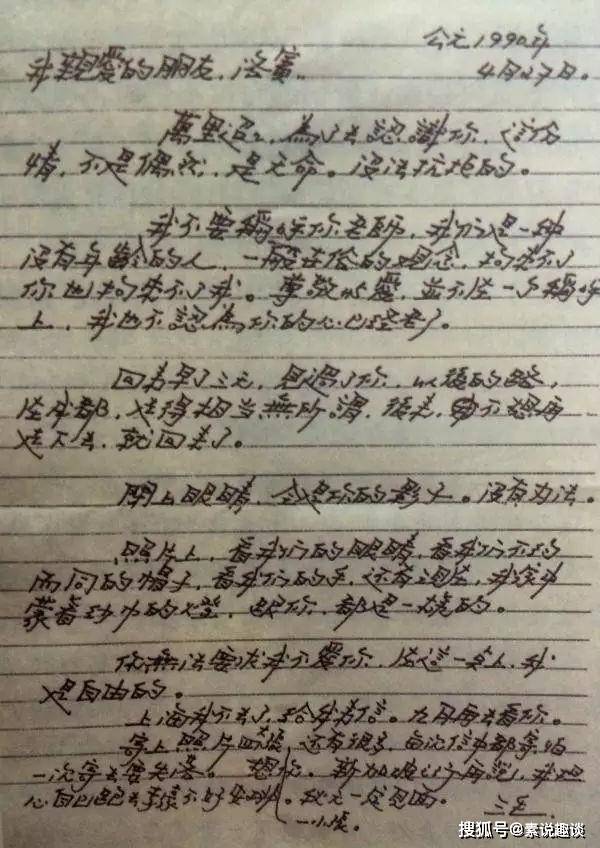 公元1990年
我親愛的朋友，洛賓。
4月27日。
萬里迢迢，為了去認識你，這份
情，不是偶然，是天命。沒法抗拒的。
我不要稱呼你老師，我們是一種
沒有年齡的人，一般世俗的觀念，拘束不了
你也拘束不了我。尊敬與愛，並不在一個稱呼
上，我也不認為你的心已經老了。
回來早了三天，見過了你，以後的路，
在成都，走得相當無所謂，後來，不想再
走下去，就回來了。
閉上眼睛，全是你的影子。沒有办法。
照片上，看我們的眼睛，看我們不約
而同的帽子，看我們的手，还有現在，我家中
蒙着纱巾的燈，跟你，都是一樣的。
你無法要求我不愛你，在這一点上，我
是自由的。
上海我不去了，给我来信。九月再去看你。
寄上照片四張，还有很多，每次信中都寄怕
一次寄去要失落。想你。新加坡之行再說，我担
心自己跑去手續不好安排。秋天一定見面。
三毛
一小張。
搜狐号@素说趣谈